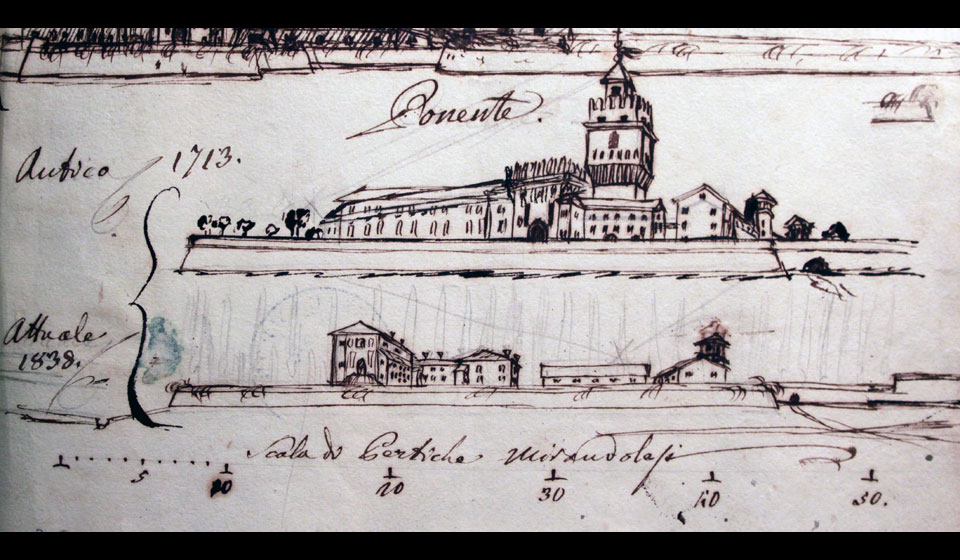 Ponente.
Antico 1713.
Attuale
1838.
Scala di Pertiche Mirandolesi
5 10 20 30 40 50.